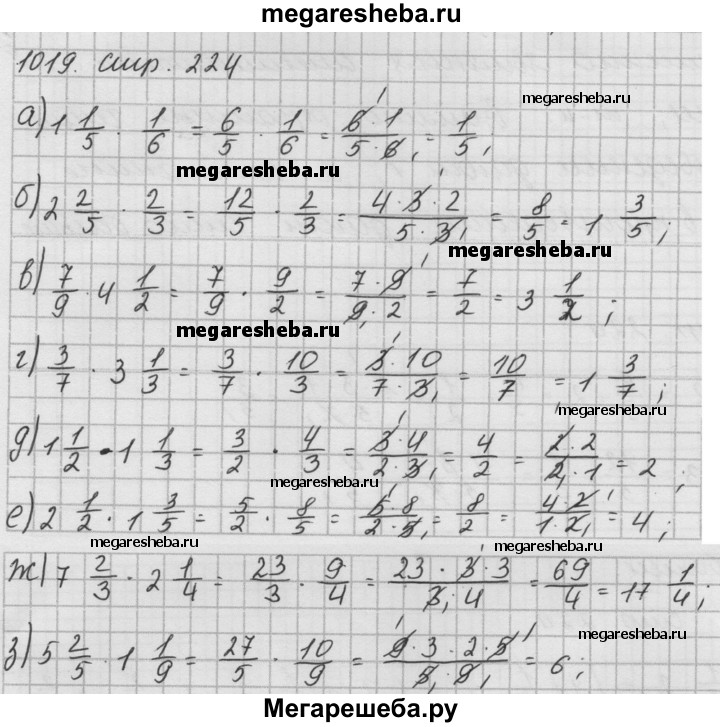 megaresheba.ru
1019. стр. 224
megaresheba.ru
а) 1 1/5 · 1/6 = 6/5 · 1/6 = 6·1/5·6 = 1/5;
megaresheba.ru
б) 2 2/5 · 2/3 = 12/5 · 2/3 = 4·3·2/5·3 = 8/5 = 1 3/5;
megaresheba.ru
в) 7/9 · 4 1/2 = 7/9 · 9/2 = 7·9/9·2 = 7/2 = 3 1/2;
megaresheba.ru
г) 3/7 · 3 1/3 = 3/7 · 10/3 = 3·10/7·3 = 10/7 = 1 3/7;
megaresheba.ru
д) 1 1/2 · 1 1/3 = 3/2 · 4/3 = 3·4/2·3 = 4/2 = 2·2/2·1 = 2;
megaresheba.ru
е) 2 1/2 · 1 3/5 = 5/2 · 8/5 = 5·8/2·5 = 8/2 = 4·2/1·2 = 4;
megaresheba.ru megaresheba.ru
ж) 7 2/3 · 2 1/4 = 23/3 · 9/4 = 23·3·3/3·4 = 69/4 = 17 1/4;
megaresheba.ru
з) 5 2/5 · 1 1/9 = 27/5 · 10/9 = 9·3·2·5/5·9 = 6;
Мегарешеба.ру